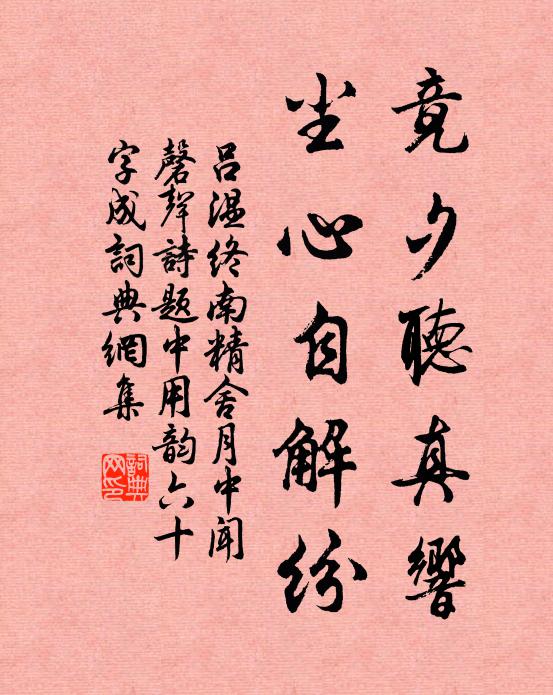 竟夕聽真響
坐心自解紛
吕温終南精舍月中聞
磬聲詩题中用韵六十
字成詞典網集
詞典网印